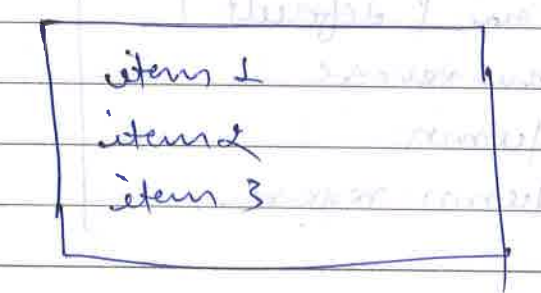 item 1
item 2
item 3